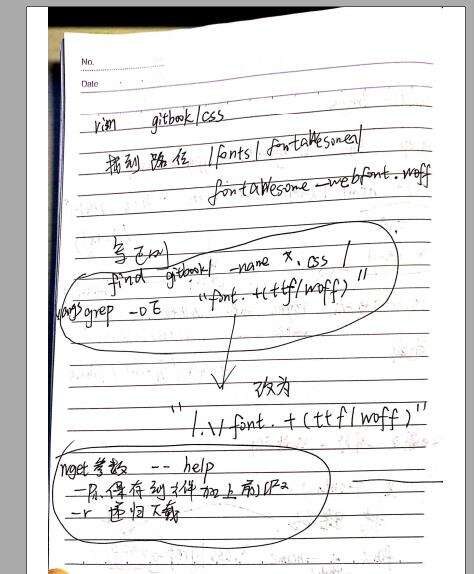 No.
Date
vim gitbook/css
找到 路径 /fonts/ fontAwesome/
fontAwesome-webfont.woff
写正则
find gitbook/ -name *.css |
xargs grep -oE "font.+(ttf|woff)"
改为
"/.\/font.+(ttf|woff)"
wget 参数 -- help
保存到文件加上前
-r 递归下载